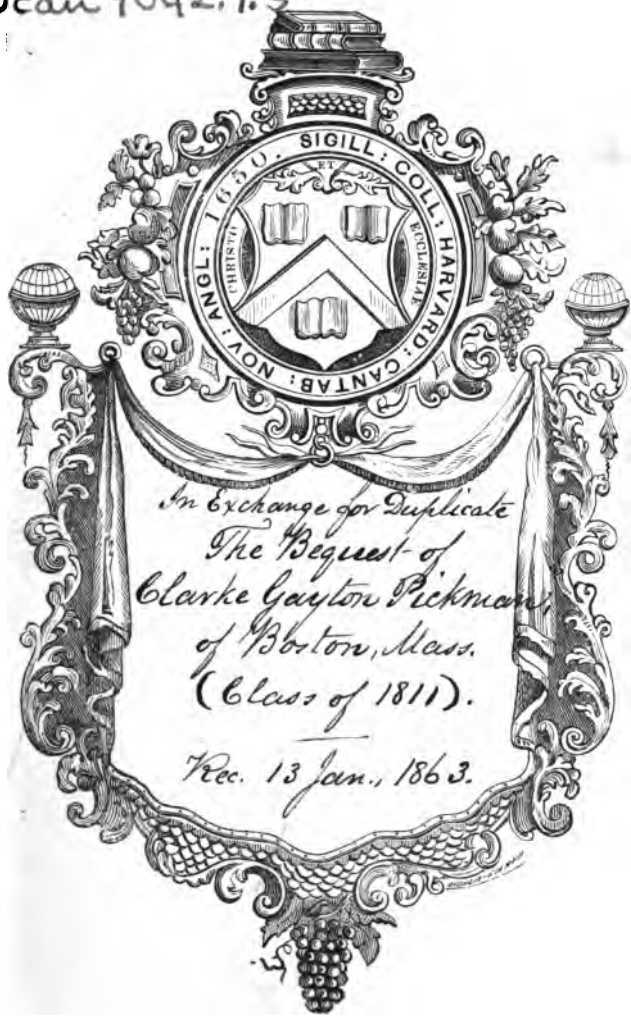 SIGILL: COLL: HARVARD: CANTAB: NOV: ANGL: 1650.
ET
CHRISTO
ECCLESIAE
In Exchange for Duplicate
The Bequest of
Clarke Gayton Pickman,
of Boston, Mass.
(Class of 1811).
Rec. 13 Jan., 1863.